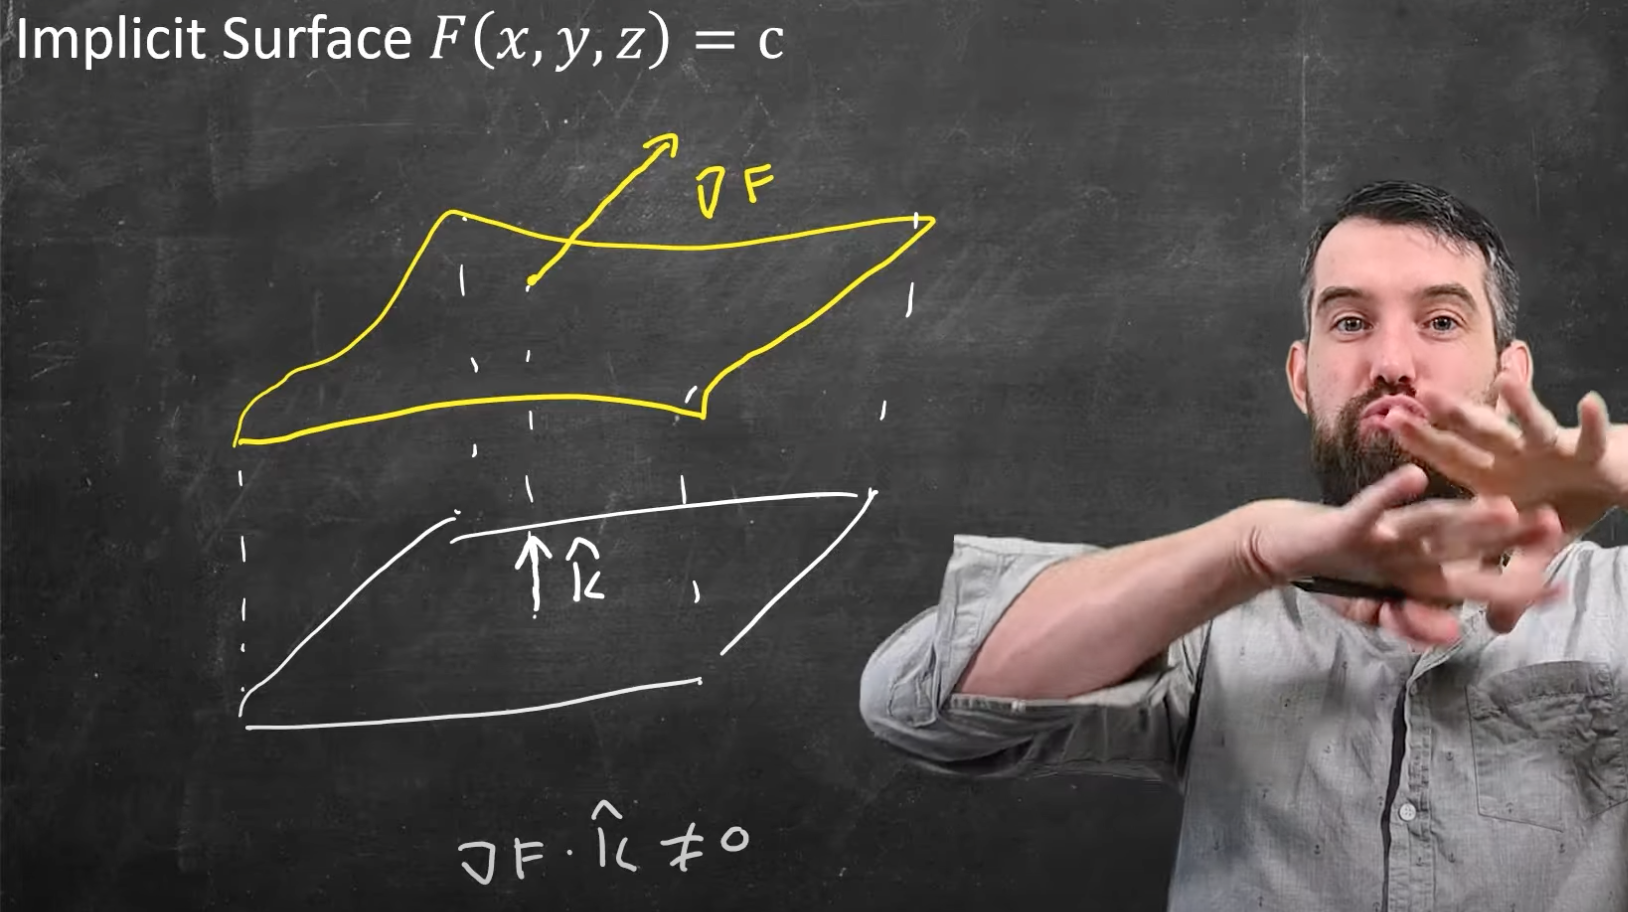 Implicit Surface F(x, y, z) = c
∇F
k̂
∇F · k̂ ≠ 0